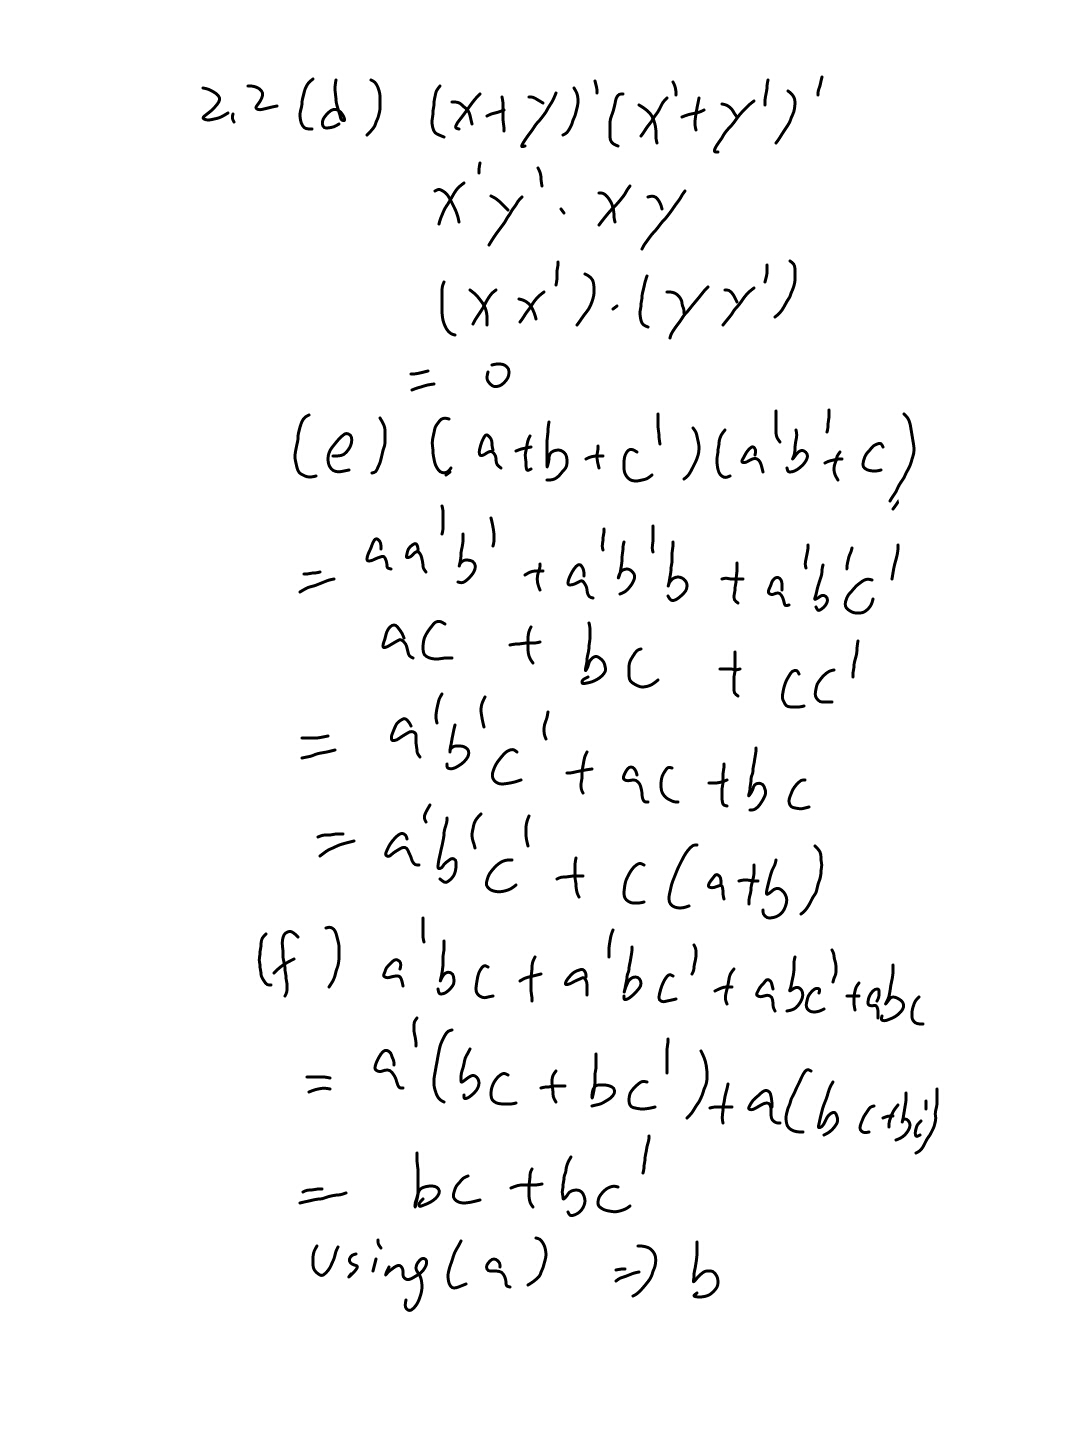 2.2 (d) (x+y)'(x'+y')'
x'y'. xy
(xx').(yy')
= 0
(e) (a+b+c')(a'b'+c)
= aa'b' + a'b'b + a'b'c'
ac + bc + cc'
= a'b'c' + ac + bc
= a'b'c' + c(a+b)
(f) a'bc + a'bc' + abc' + abc
= a'(bc + bc') + a(bc+bc')
= bc + bc'
using (a) => b